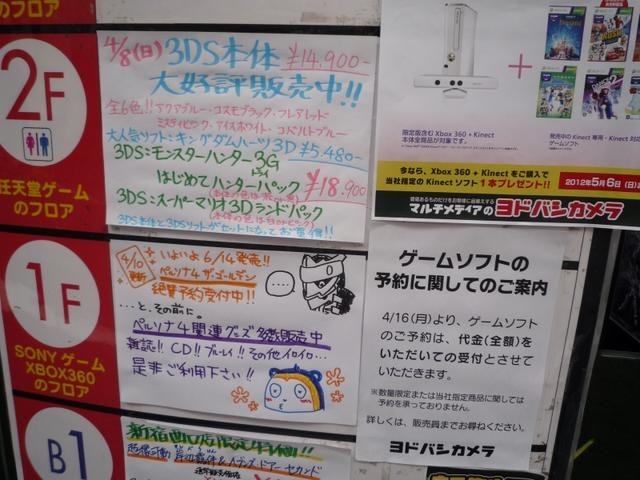 2F
任天堂ゲーム
のフロア
1F
SONYゲーム
XBOX360
のフロア
B1
4/8(日) 3DS本体 ¥14.900-
大好評販売中!!
全6色!! アクアブルー・コスモブラック・フレアレッド
ミスティピンク・アイスホワイト・コバルトブルー
大人気ソフト:キングダムハーツ3D ¥5.480-
3DS:モンスターハンター3G
はじめてハンターパック ¥18.900
3DS:スーパーマリオ3Dランドパック
3DS本体と3DSソフトがセットになってお買得!!
4/10更新
いよいよ6/14発売!!
ペルソナ4 ザ・ゴールデン
絶賛予約受付中!!
…と、その前に。
ペルソナ4関連グッズ多数販売中
雑誌!! CD!! ブルーレイ!! その他イロイロ…
是非ご利用下さい!!
限定版含む Xbox 360 + Kinect
本体全商品が対象です。
+
発売中の Kinect 専用・Kinect 対
ゲームソフト
今なら、Xbox 360 + Kinect をご購入で
当社指定の Kinect ソフト 1本プレゼント!!
2012年5月6日(日)
マルチメディアのヨドバシカメラ
ゲームソフトの
予約に関してのご案内
4/16(月)より、ゲームソフト
のご予約は、代金(全額)を
いただいての受付とさせて
いただきます。
※数量限定または当社指定商品に関しては
予約を承っておりません。
詳しくは、販売員までお尋ねください。
ヨドバシカメラ